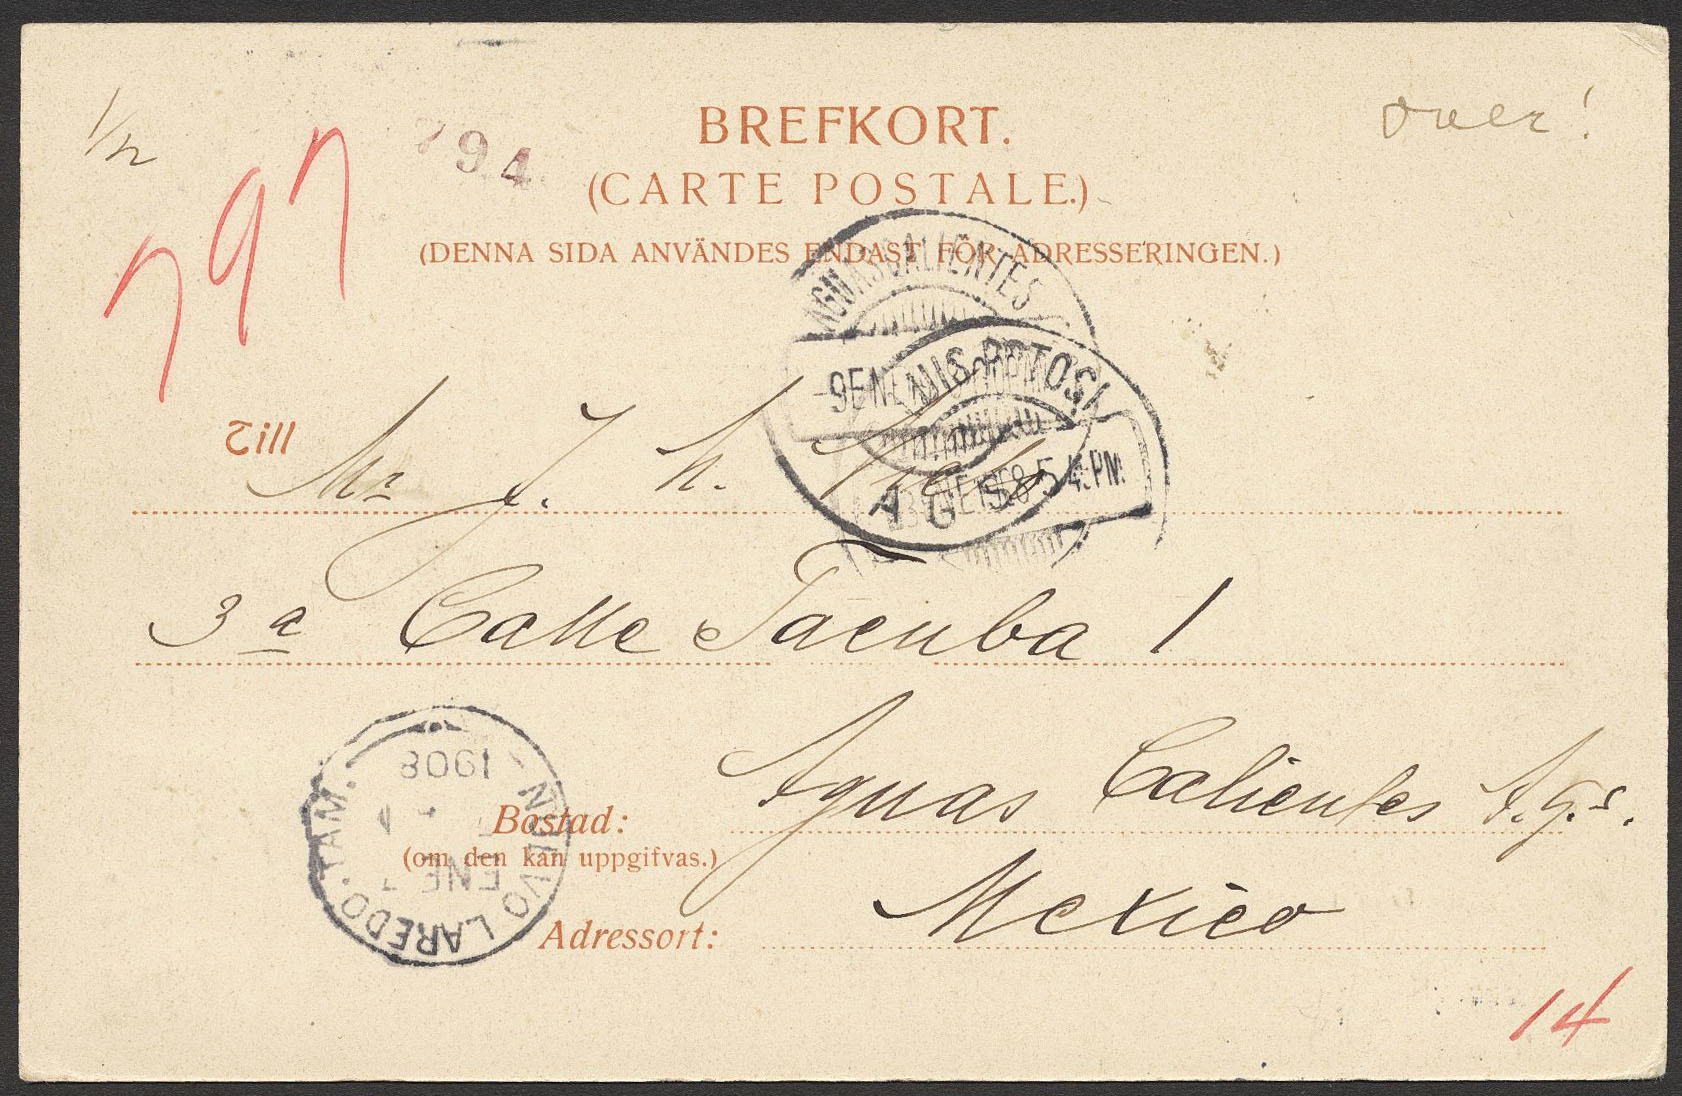 1/12
over!
797
794
BREFKORT.
(CARTE POSTALE.)
(DENNA SIDA ANVÄNDES ENDAST FÖR ADRESSERINGEN.)
AGUASCALIENTES
9 ENE
AGS
LUIS POTOSI
4-PM
Till Mr J. H.
3a Calle Tacuba 1
Aguas Calientes Ags.
Bostad:
(om den kan uppgifvas.)
Mexico
Adressort:
NUEVO LAREDO. TAM.
ENE 7
1908
14